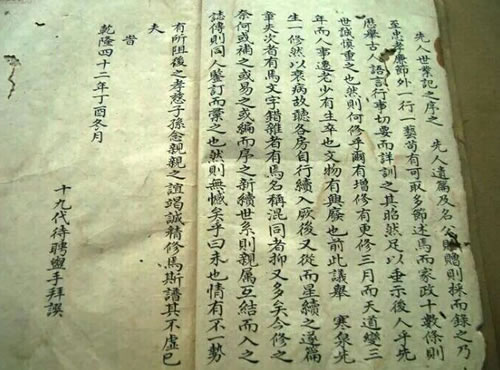 先人世業記之序之　先人遺篇及名公贈贈則採而錄之乃
至忠孝廉節外一行一藝苟有可取多節述焉而家政十數條則
歷舉古人語言行事切要而詳訓之其昭然足以垂示後人乎先
世誠慎重之也然則何修乎爾有增修有更修三月而天道變三
年而人事遠老少有生卒也文物有興廢也前此議舉　寒泉先
生一修然以衰病故聽各房自行續入厥後又從而星續之遂篇
章失次者有焉文字錯雜者有焉名稱混同者抑又多矣今修之
奈何或補之或易之或編而序之新續世系則親屬互結而入之
誌傳則同人釐訂而彙之也然則無憾矣乎曰未也情有不一勢
有所阻後之孝慈子孫念親親之誼竭誠精修焉斯譜其不虛已
夫
旹
乾隆四十二年丁酉冬月
十九代待聘盥手拜譔